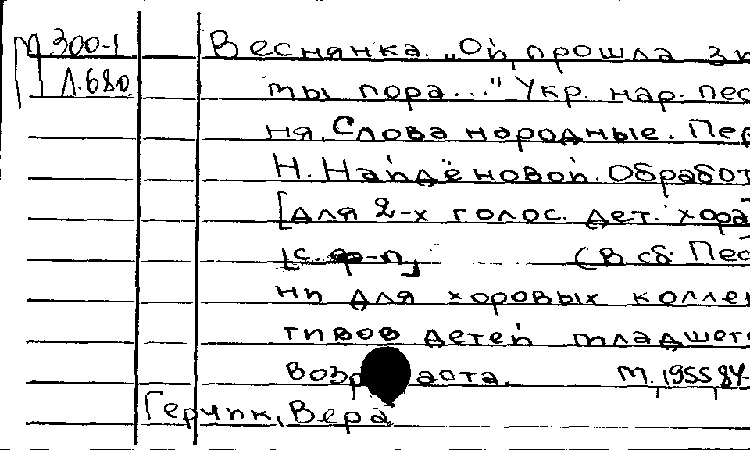 М 300-1
Л.680
Веснянка. „Ой, прошла з
ты пора..." Укр. нар. пес
ня. Слова народные. Пер
Н. Найдёновой. Обработ
[для 2-х голос. дет. хора
[с. ф-п] (В сб. Пес
ни для хоровых коллек
тивов детей младшего
возраста. М., 1955, 84
Герчик, Вера